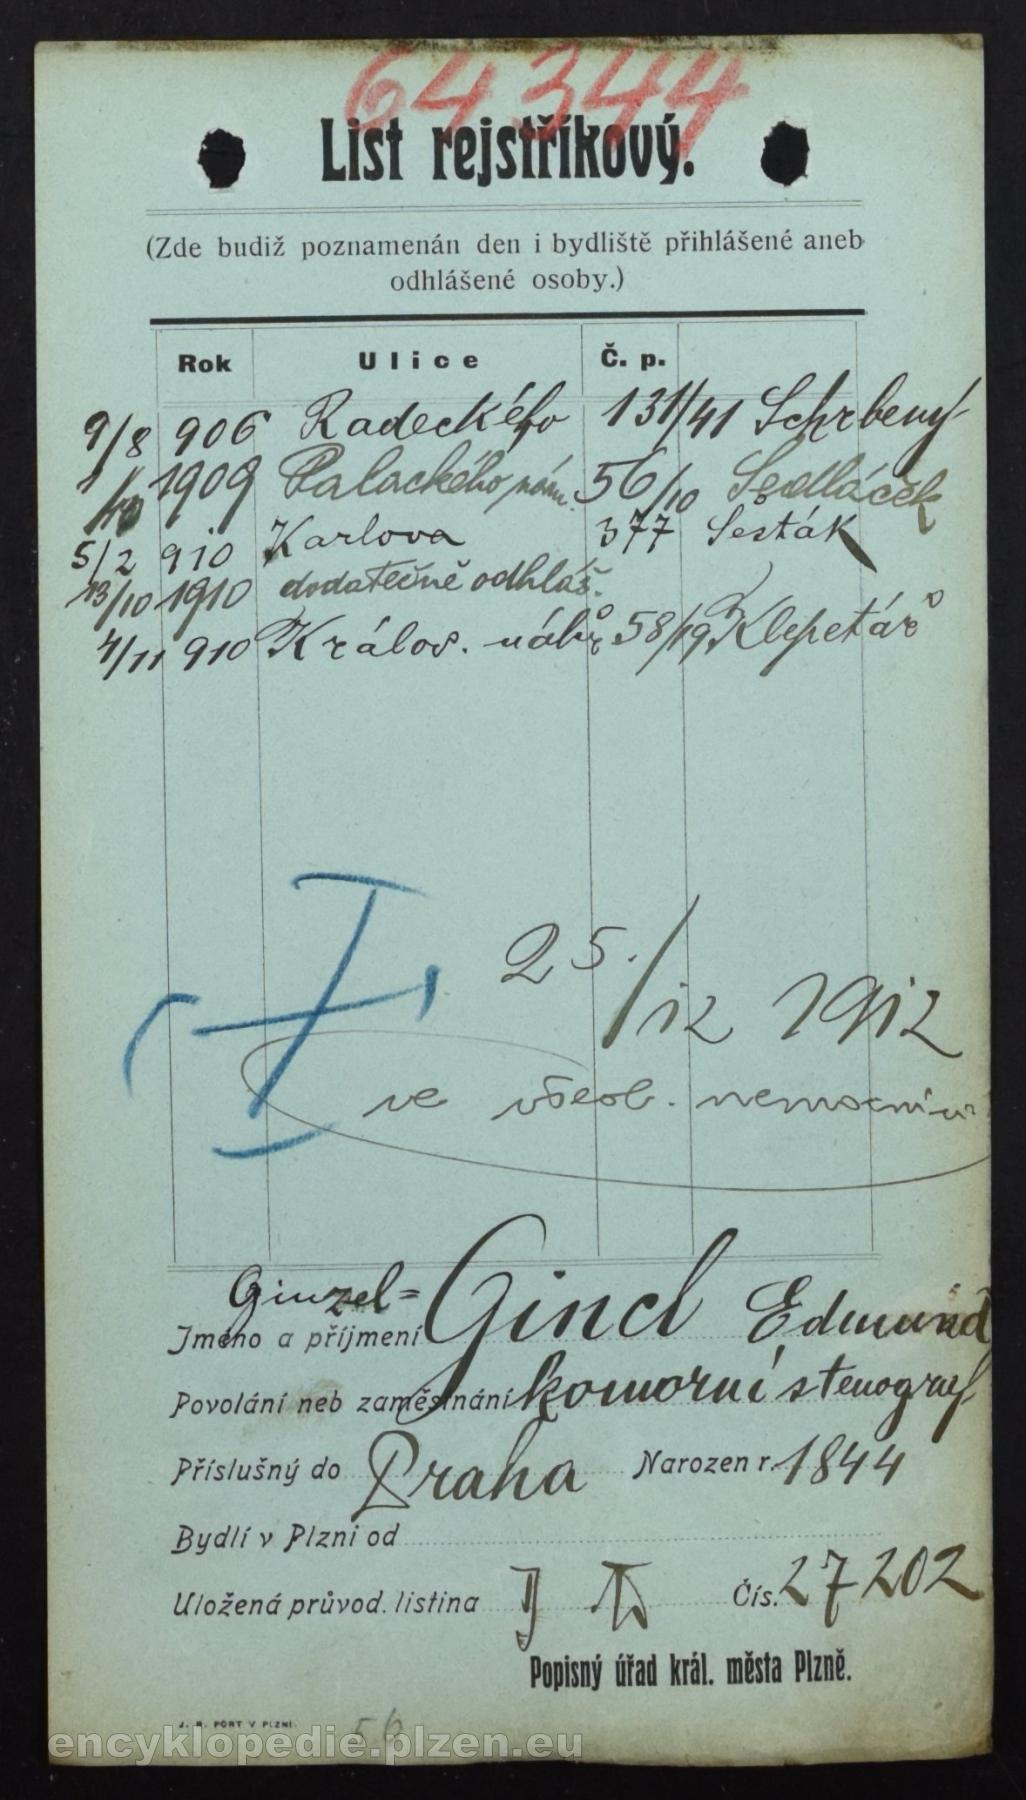 64344
List rejstříkový.
(Zde budiž poznamenán den i bydliště přihlášené aneb
odhlášené osoby.)
Rok Ulice Č. p.
9/8 906 Radeckého 131/41 Schrbený
1/10 1909 Palackého nám. 56/10 Sedláček
5/2 910 Karlova 377 Šesták
13/10 1910 dodatečně odhláš.
4/11 910 Králov. 58/19 Klepetář
25./12 1912
ve všeob. nemocnici
Ginzel =
Jméno a příjmení Gincl Edmund
Povolání neb zaměstnání komorní stenograf
Příslušný do Praha Narozen r. 1844
Bydlí v Plzni od
Uložená průvod. listina Čís. 27202
Popisný úřad král. města Plzně.
J. R. PORT V PLZNI.
56
encyklopedie.plzen.eu